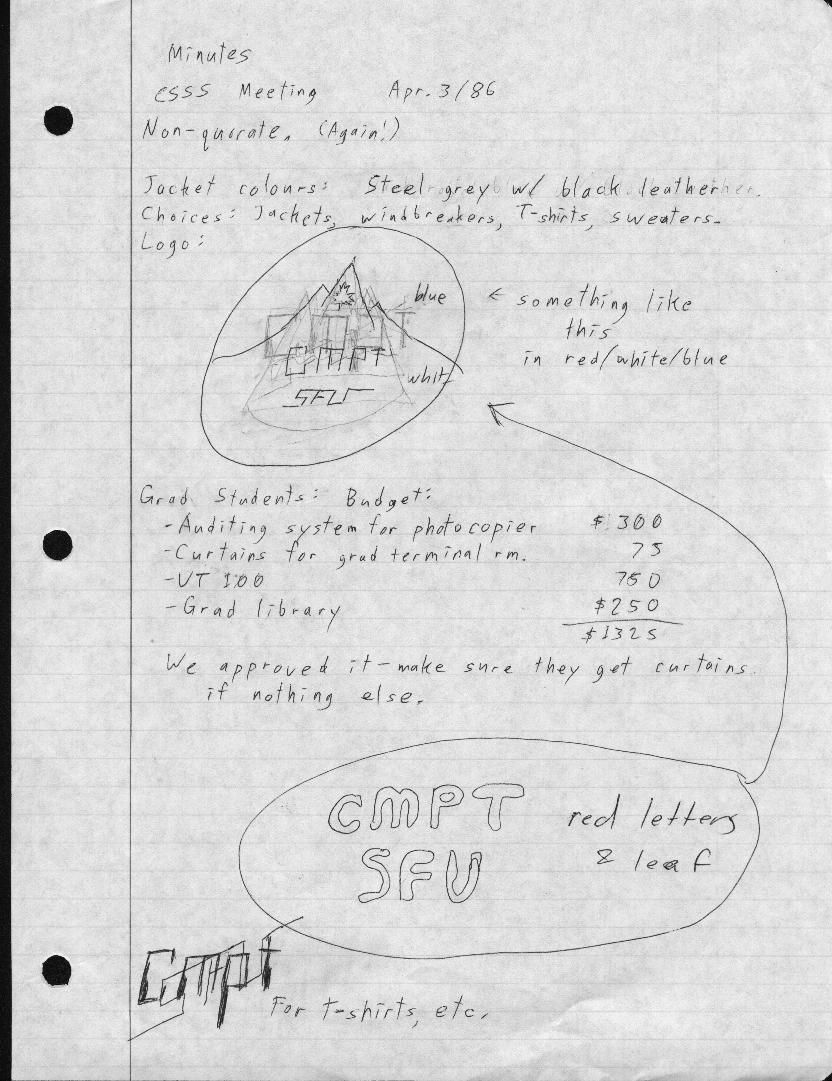 Minutes
CSSS Meeting Apr. 3/86
Non-quorate. (Again!)
Jacket colours: Steel grey w/ black leather.
Choices: Jackets, windbreakers, T-shirts, sweaters.
Logo:
blue
CMPT
white
SFU
← something like
this
in red/white/blue
Grad Students: Budget:
-Auditing system for photocopier $300
-Curtains for grad terminal rm. 75
-VT 100 750
-Grad library $250
$1325
We approved it - make sure they get curtains
if nothing else.
CMPT red letters
SFU & leaf
Cmpt
For t-shirts, etc.